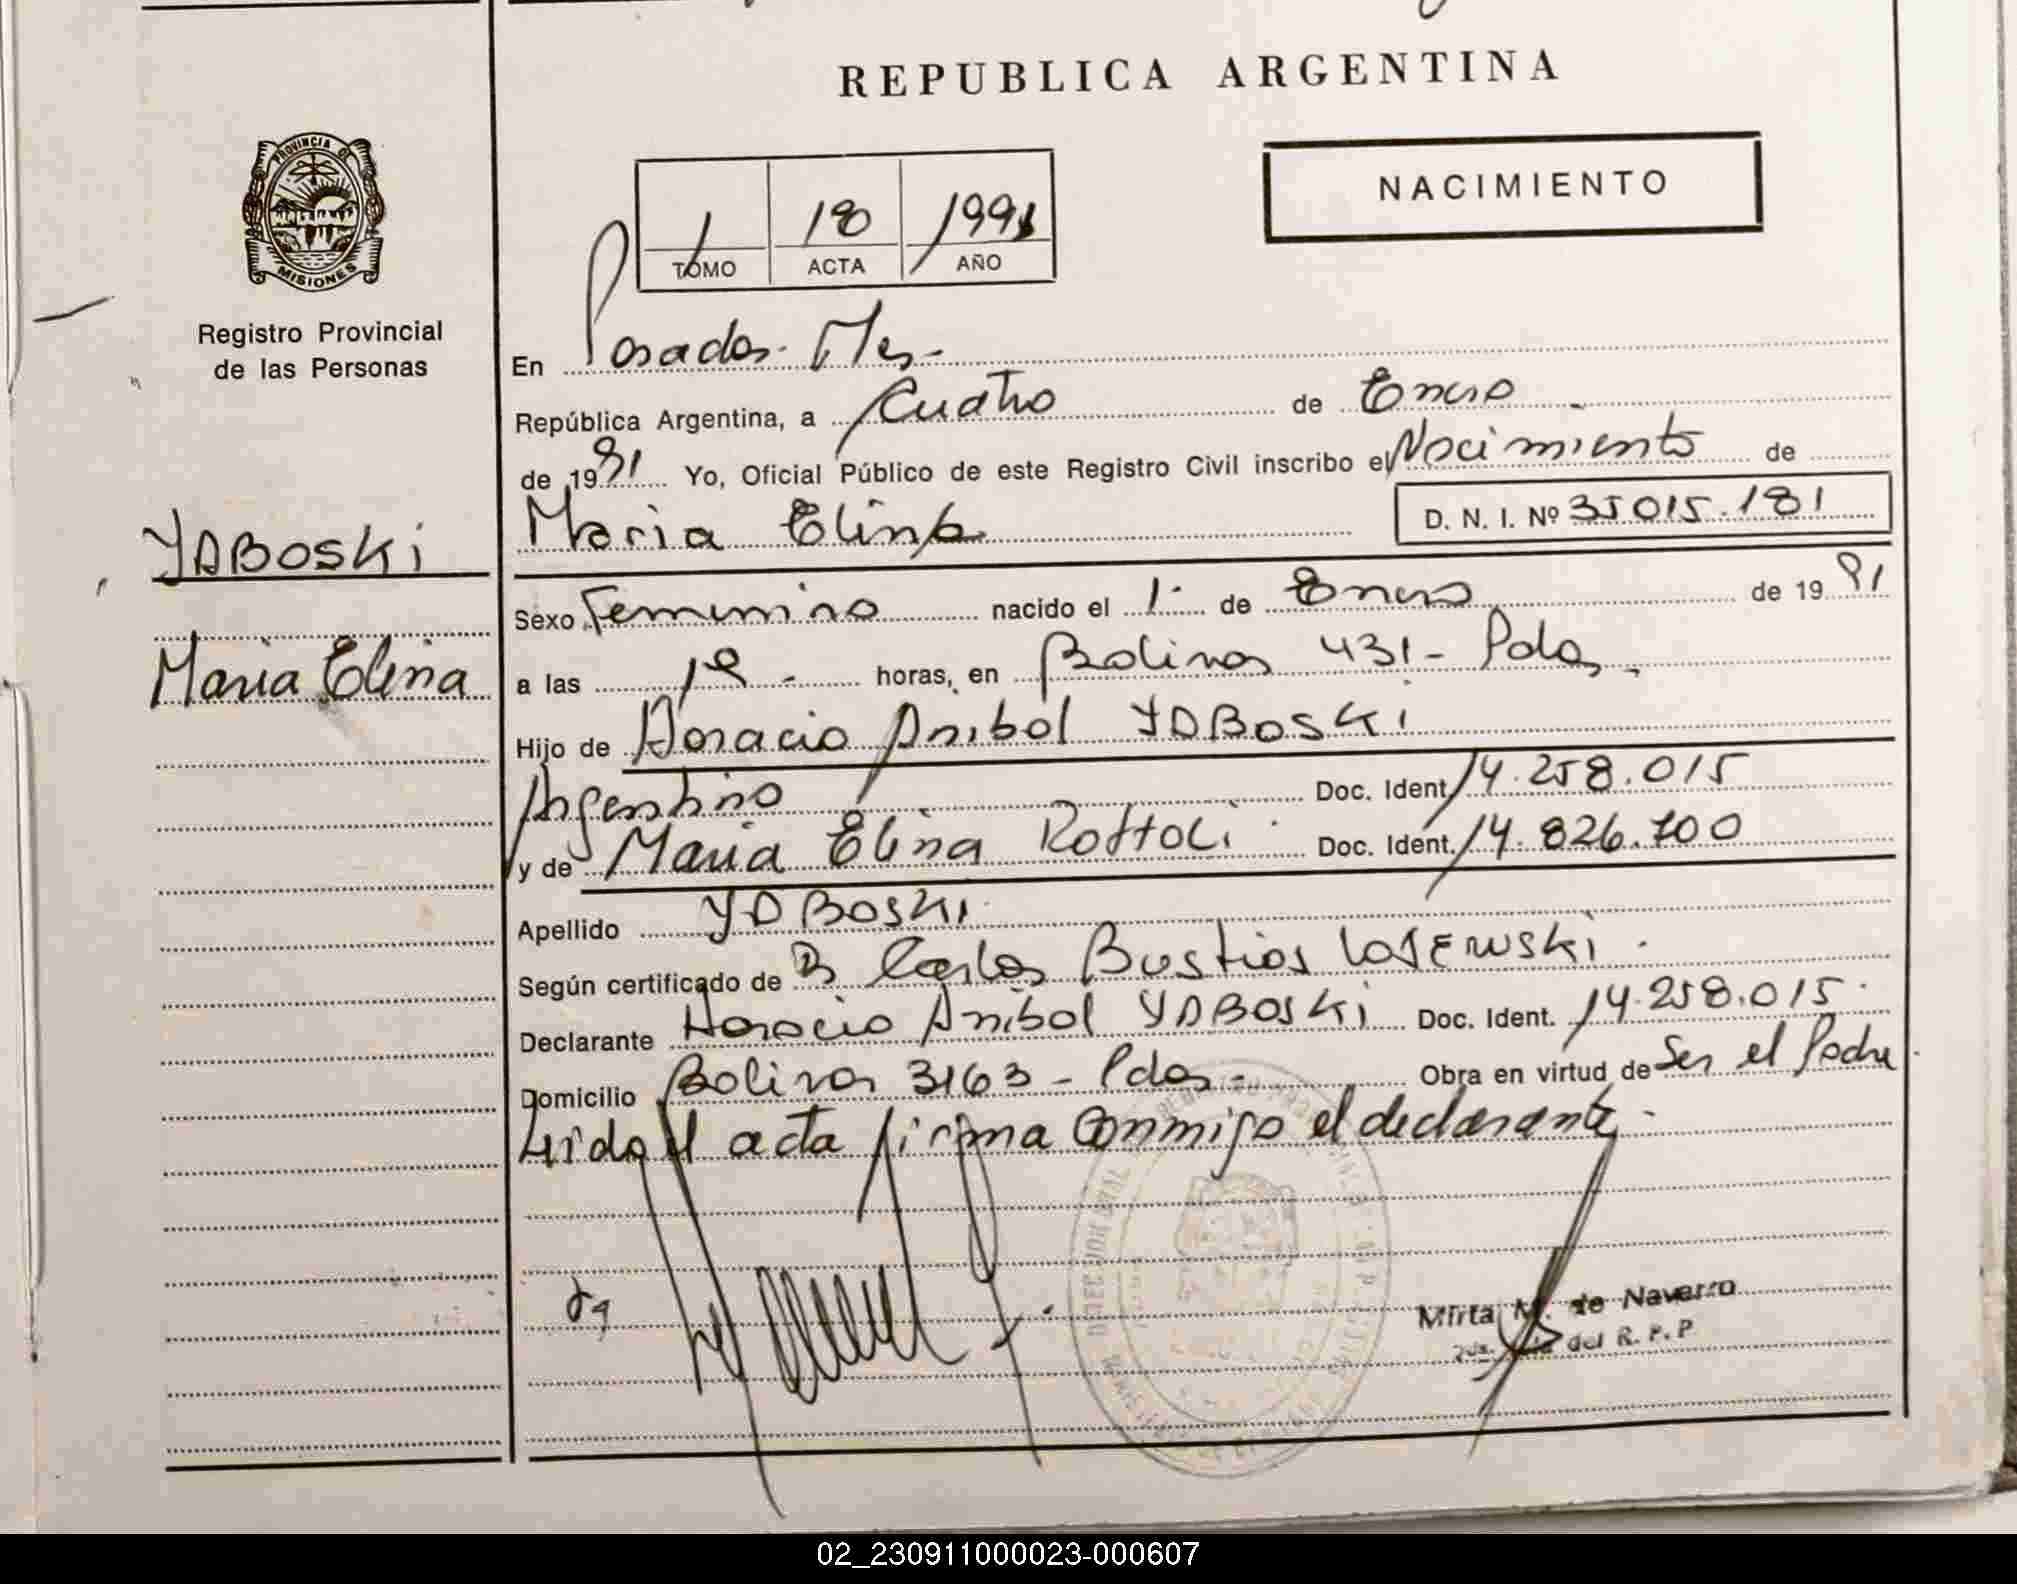 REPUBLICA ARGENTINA
PROVINCIA DE
MISIONES
Registro Provincial
de las Personas
1 18 1991
TOMO ACTA AÑO
NACIMIENTO
En Posadas - Mes -
República Argentina, a Cuatro de Enero
de 1991 Yo, Oficial Público de este Registro Civil inscribo el Nacimiento de
Maria Elina D. N. I. Nº 35015.181
YABOSKI
Maria Elina
Sexo Femenino nacido el 1º de Enero de 1991
a las horas, en Bolivar 431 - Pdas -
Hijo de Horacio Anibal YABOSKI
Argentino Doc. Ident. 14.258.015
y de Maria Elina Rottoli Doc. Ident. 14.826.700
Apellido YABOSKI
Según certificado de Carlos Bustios LOSEWSKI
Declarante Horacio Anibal YABOSKI Doc. Ident. 14.258.015
Domicilio Bolivar 3163 - Pdas - Obra en virtud de Ser el Padre
Leida el acta firma conmigo el declarante -
Mirta M. de Navarro
del R. P. P
02_230911000023-000607